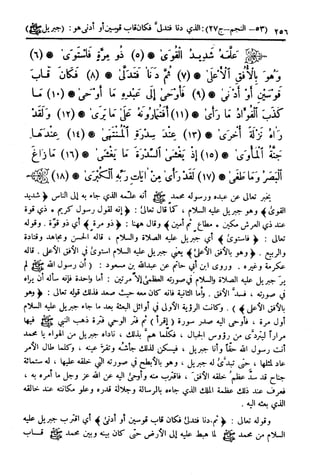 ٢٥٦ (٥٣- النجم -ج٢٧): الذي دنا فتدلى فكان قاب قوسين أو أدنى هو: (جبريل ﷺ)
عَلَّمَهُ شَدِيدُ الْقُوَىٰ (٥) ذُو مِرَّةٍ فَاسْتَوَىٰ (٦)
وَهُوَ بِالْأُفُقِ الْأَعْلَىٰ (٧) ثُمَّ دَنَا فَتَدَلَّىٰ (٨) فَكَانَ قَابَ
قَوْسَيْنِ أَوْ أَدْنَىٰ (٩) فَأَوْحَىٰ إِلَىٰ عَبْدِهِ مَا أَوْحَىٰ (١٠) مَا
كَذَبَ الْفُؤَادُ مَا رَأَىٰ (١١) أَفَتُمَارُونَهُ عَلَىٰ مَا يَرَىٰ (١٢) وَلَقَدْ
رَآهُ نَزْلَةً أُخْرَىٰ (١٣) عِندَ سِدْرَةِ الْمُنتَهَىٰ (١٤) عِندَهَا
جَنَّةُ الْمَأْوَىٰ (١٥) إِذْ يَغْشَى السِّدْرَةَ مَا يَغْشَىٰ (١٦) مَا زَاغَ
الْبَصَرُ وَمَا طَغَىٰ (١٧) لَقَدْ رَأَىٰ مِنْ آيَاتِ رَبِّهِ الْكُبْرَىٰ (١٨)
يخبر تعالى عن عبده ورسوله محمد ﷺ أنه علمه الذي جاء به إلى الناس ﴿شديد
القوى﴾ وهو جبريل عليه السلام، كما قال تعالى: ﴿إنه لقول رسول كريم * ذي قوة
عند ذي العرش مكين * مطاع ثم أمين﴾ وقال ههنا: ﴿ذو مرة﴾ أي ذو قوة. وقوله
تعالى: ﴿فاستوى﴾ أي جبريل عليه الصلاة والسلام، قاله الحسن ومجاهد وقتادة
والربيع. ﴿وهو بالأفق الأعلى﴾ يعني جبريل عليه السلام استوى في الأفق الأعلى. قاله
عكرمة وغيره. وروى ابن أبي حاتم عن عبدالله بن مسعود: (أن رسول الله ﷺ لم
ير جبريل عليه الصلاة والسلام في صورته إلا مرتين: أما واحدة فإنه سأله أن يراه
في صورته، فسد الأفق. وأما الثانية فإنه كان معه حيث صعد فذلك قوله تعالى: ﴿وهو
بالأفق الأعلى﴾). وكانت الرؤية الأولى في أوائل البعثة بعد ما جاء جبريل عليه السلام
أول مرة، فأوحى إليه صدر سورة (إقرأ) ثم فتر الوحي فترة ذهب النبي ﷺ فيها
مراراً ليتردى من رؤوس الجبال، فكلما هم بذلك، ناداه جبريل من الهواء يا محمد
أنت رسول الله حقاً وأنا جبريل، فيسكن لذلك جأشه وتقر عينه، وكلما طال الأمر
عاد لمثلها، حتى تبدى له جبريل، وهو بالأبطح في صورته التي خلقه عليها، له ستمائة
جناح قد سد عظم خلقه الأفق. فاقترب منه وأوحى إليه عن الله عز وجل ما أمره به،
فعرف عند ذلك عظمة الملك الذي جاءه بالرسالة وجلالة قدره وعلو مكانته عند خالقه
الذي بعثه إليه.
وقوله تعالى: ﴿ثم دنا فتدلى فكان قاب قوسين أو أدنى﴾ أي اقترب جبريل عليه
السلام من محمد ﷺ لما هبط عليه إلى الأرض حتى كان بينه وبين محمد ﷺ قاب